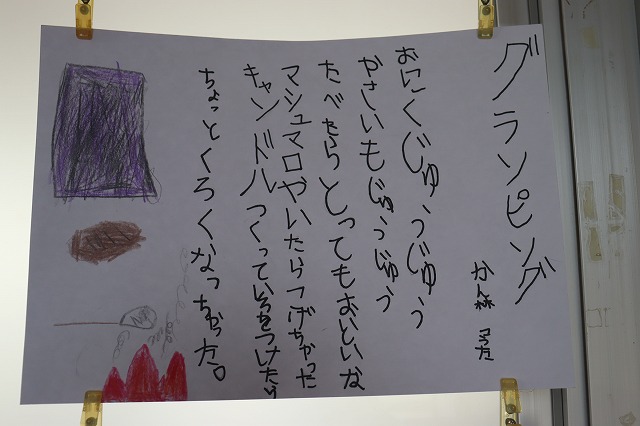 グランピング
かん森
おにくじゅうじゅう
やさいもじゅうじゅう
たべたらとってもおいしいな
マシュマロやいたらこげちゃった
キャンドルつくっていろをつけたら
ちょっとくろくなっちゃった。